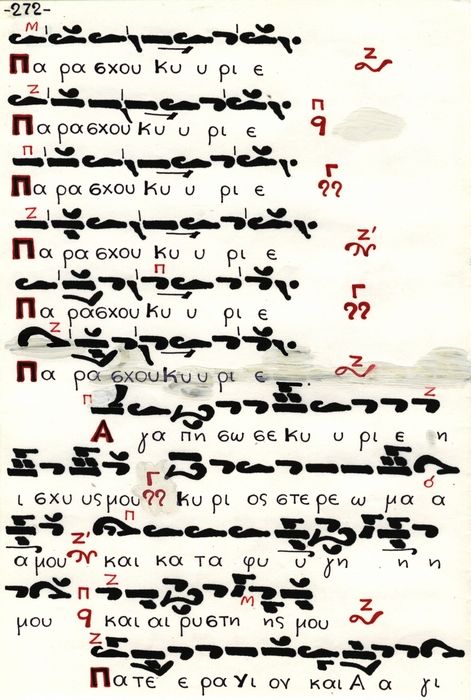 -272-
Πα ρα σχου Κυ υ ρι ε
Πα ρα σχου Κυ υ ρι ε
Πα ρα σχου Κυ υ ρι ε
Πα ρα σχου Κυ υ ρι ε
Πα ρα σχου Κυ υ ρι ε
Πα ρα σχου Κυ υ ρι ε
Α γα πη σω σε Κυ υ ρι ε η
ι σχυ υς μου κυ ρι ος στε ρε ω μα α
α μου και κα τα φυ υ γη η η
μου και αι ρυστη ης μου
Πατε ε ρα Υι ον και Α α γι